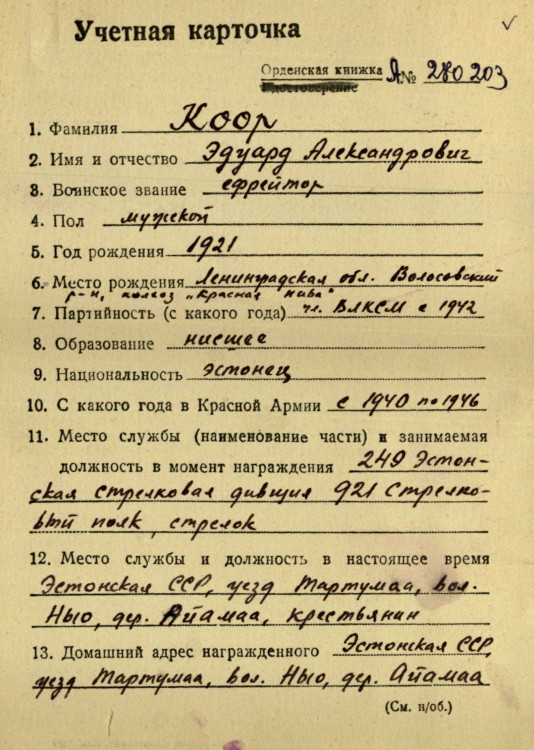 Учетная карточка
Орденская книжка А№ 280203
Удостоверение
1. Фамилия Коор
2. Имя и отчество Эдуард Александрович
3. Воинское звание ефрейтор
4. Пол мужской
5. Год рождения 1921
6. Место рождения Ленинградская обл. Волосовский
р-н, колхоз "Красная нива"
7. Партийность (с какого года) чл. ВЛКСМ с 1942
8. Образование нисшее
9. Национальность эстонец
10. С какого года в Красной Армии с 1940 по 1946
11. Место службы (наименование части) и занимаемая
должность в момент награждения 249 Эстон-
ская стрелковая дивизия 921 Стрелко-
вый полк, стрелок
12. Место службы и должность в настоящее время
Эстонская ССР, уезд Тартумаа, вол.
Ныо, дер. Апамаа, крестьянин
13. Домашний адрес награжденного Эстонская ССР,
уезд Тартумаа, вол. Ныо, дер. Апамаа
(См. н/об.)